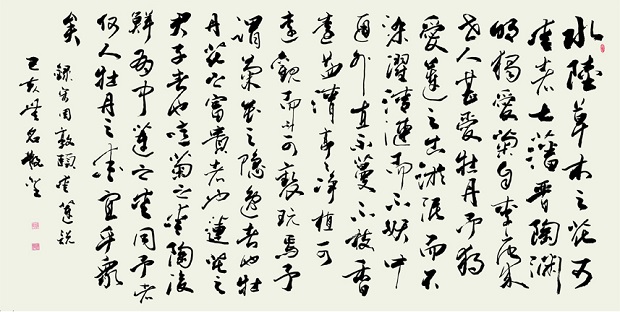 水陸草木之花可
愛者甚蕃晉陶渊
明獨愛菊自李唐來
世人甚愛牡丹予獨
愛蓮之出淤泥而不
染濯清漣而不妖中
通外直不蔓不枝香
遠益清亭亭淨植可
遠觀而不可褻玩焉予
謂菊花之隱逸者也牡
丹花之富貴者也蓮花之
君子者也噫菊之愛陶後
鮮有聞蓮之愛同予者
何人牡丹之愛宜乎眾
矣
錄宋周敦頤愛蓮說
己亥